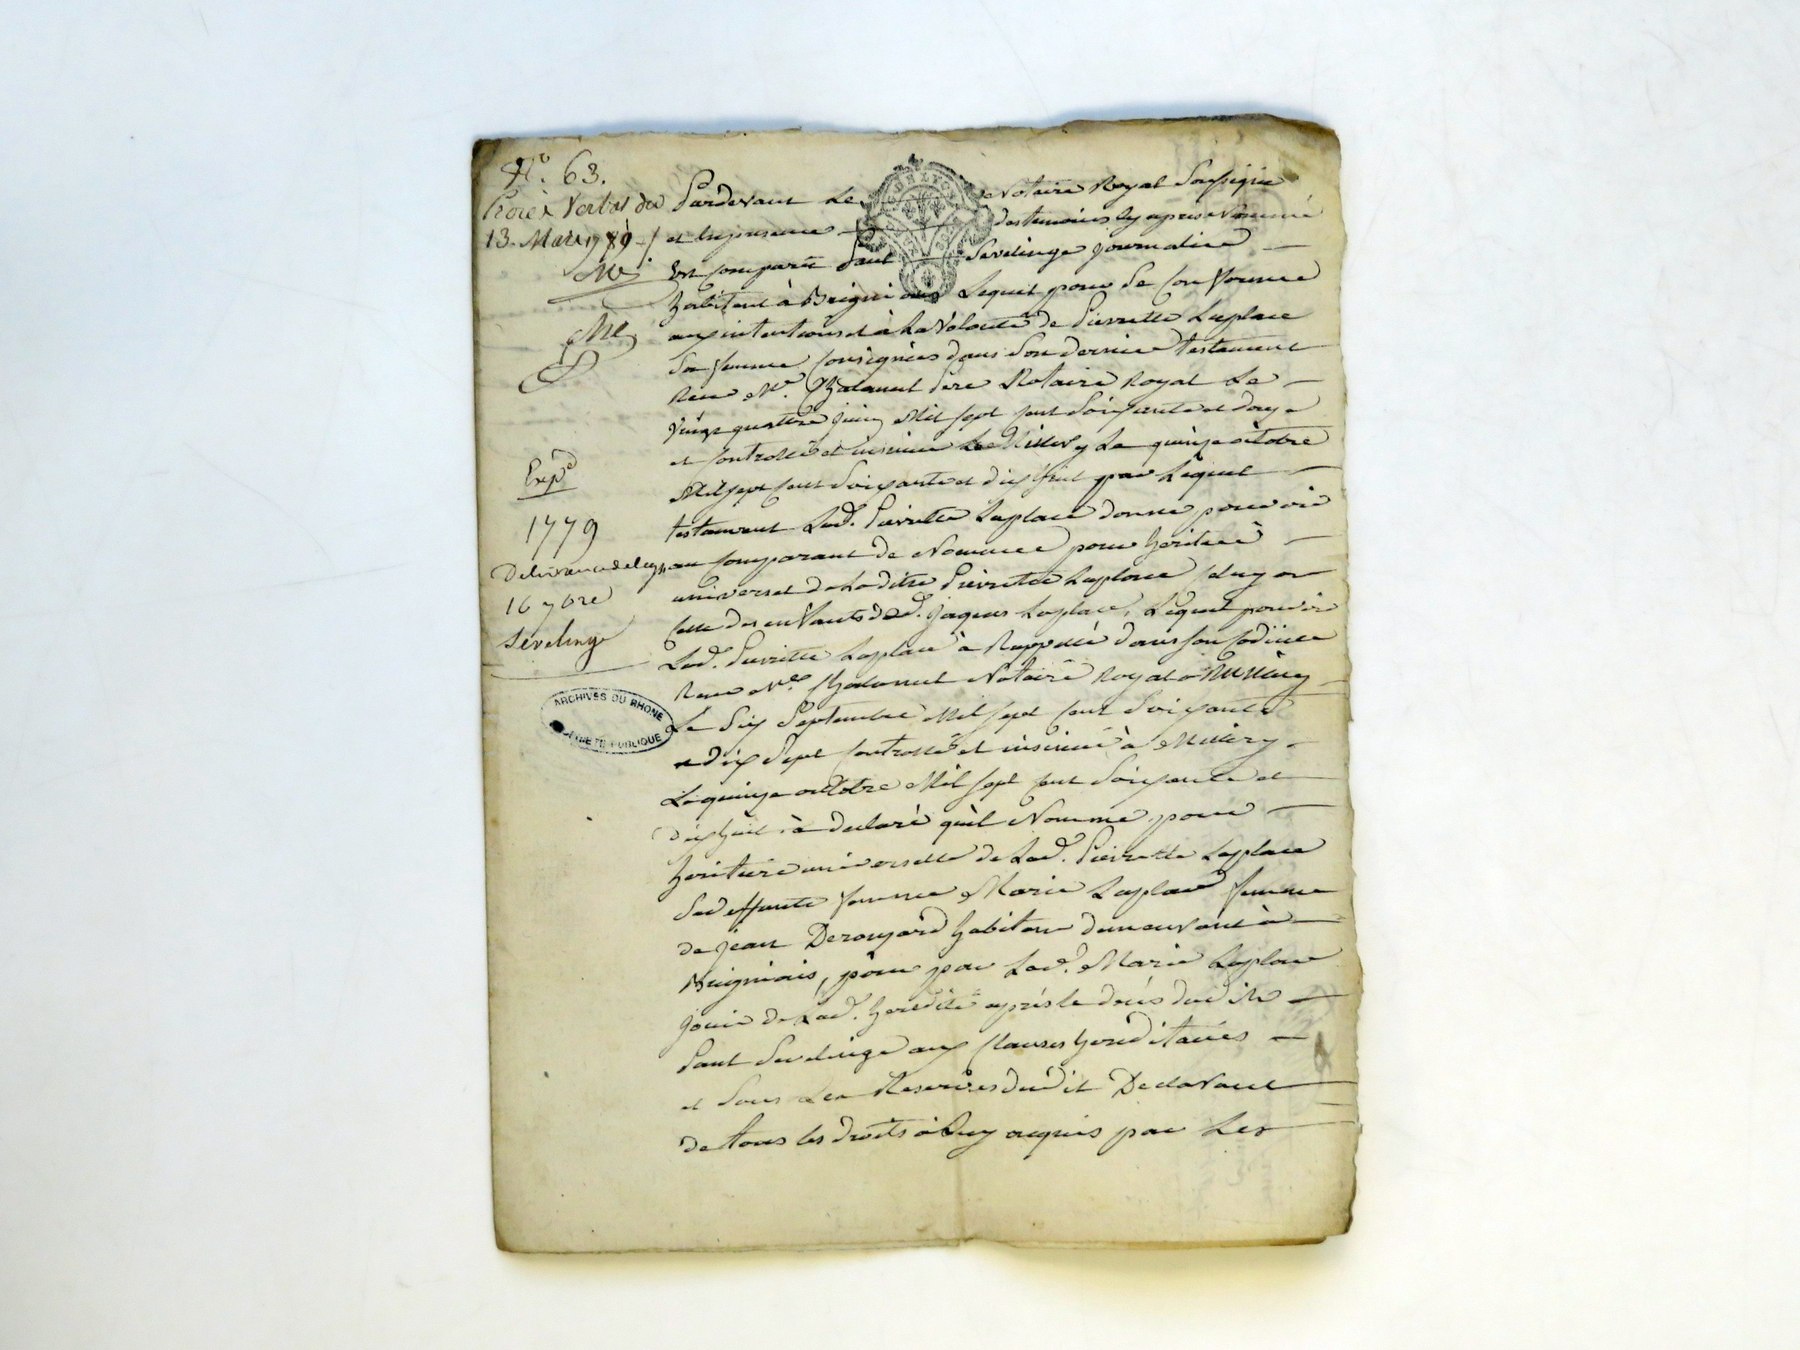 N.° 63.
Procès Verbal du
13. Mars 1789
Me
Me
Exp.d
1779
Delivrance de legs
16 7bre
Seveling
ARCHIVES DU RHONE
PUBLIQUE
DE LYON
Pardevant Le Notaire Royal Soussigné
et en presence des temoins cy apres Nommé
Est comparû Paul Sevelinge journalier
habitant à Brignais Lequel pour Se Conformer
aux intentions et à La Volonté de Pierrette Laplace
Sa femme Consignées dans Son dernier testament
Reçu Me. Chalanut Pere Notaire Royal Le
Vingt quatre juin Mil Sept Cent Soixante et douze
et Controllé et insinué Le quinze octobre
Mil Sept Cent Soixante et dix huit par Lequel
testament Lad. Pierrette Laplace donne pouvoir
au Comparant de Nommer pour heritier
universel de Ladite Pierrette Laplace Celuy ou
Celle des enfants de d. jaques Laplace, Lequel pouvoir
Lad. Pierrette Laplace à Rappellé dans Son Codicile
Reçu Me. Chalanut Notaire Royal à Millery
Le Six Septembre Mil Sept Cent Soixante
et dix Sept Controllé et insinué à Millery
Le quinze octobre Mil Sept Cent Soixante et
dix huit à declaré qu'il Nomme pour
heritiere universelle de Lad. Pierrette Laplace
Sa deffunte femme Marie Laplace femme
de jean Derougard habitan demeurant à
Brignais, pour par Lad. Marie Laplace
jouir de Lad. heredité après le decès dudit
Paul Sevelinge aux Clauses hereditaires
et Sous Les Reserves dudit Declarant
de tous les droits à Luy acquis par Les